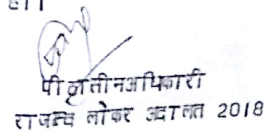 पीठासीनअधिकारी
राजस्व लोक अदालत 2018